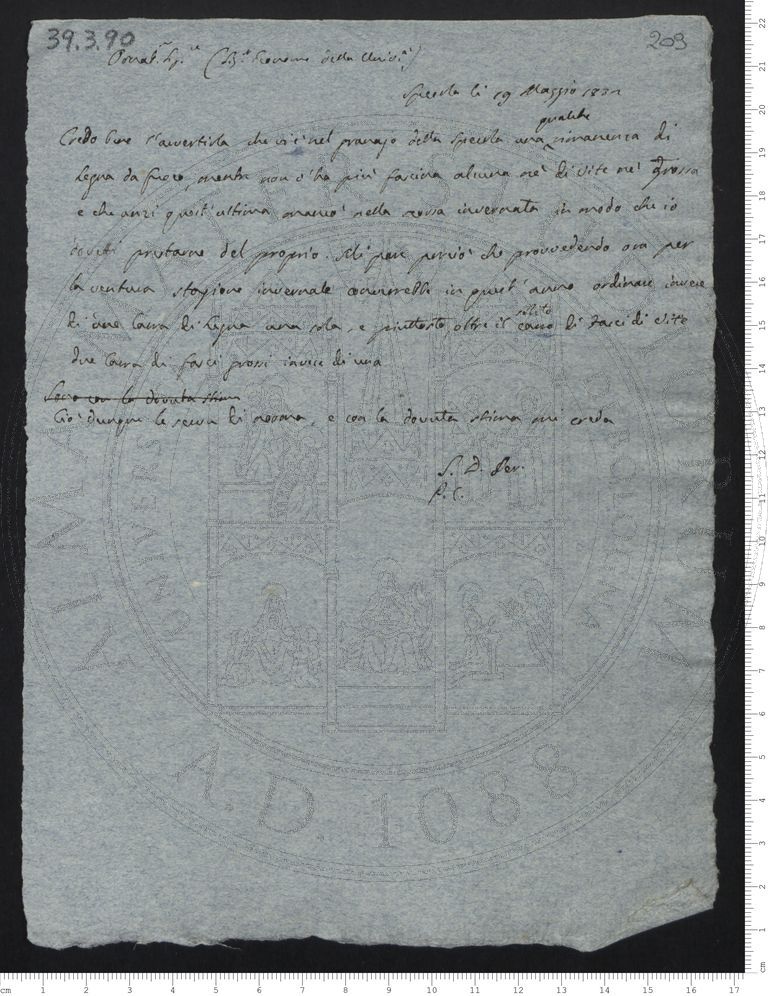 39.3.90
209
Specola li 19 Maggio 183
Credo bene l'avvertirla che vi è nel granajo della Specola una qualche rimanenza di
legna da fuoco, mentre non v'ha più fascina alcuna nè di Vite nè grossa
e che anzi quest'ultima mancò nella scorsa invernata in modo che io
dovetti prestarne del proprio. Mi pare perciò che provvedendo ora per
la ventura stagione invernale converrebbe in quest'anno ordinare invece
di due Carra di legna una sola, e piuttosto oltre il solito carro di fasci di Vite
due Carra di fasci grossi invece di uno
Sono con la dovuta stima
Ciò dunque le serva di norma, e con la dovuta stima mi creda
S. D. Ser.
P. C.
ALMA MATER STUDIORUM
UNIVERSITÀ DI BOLOGNA
A.D. 1088